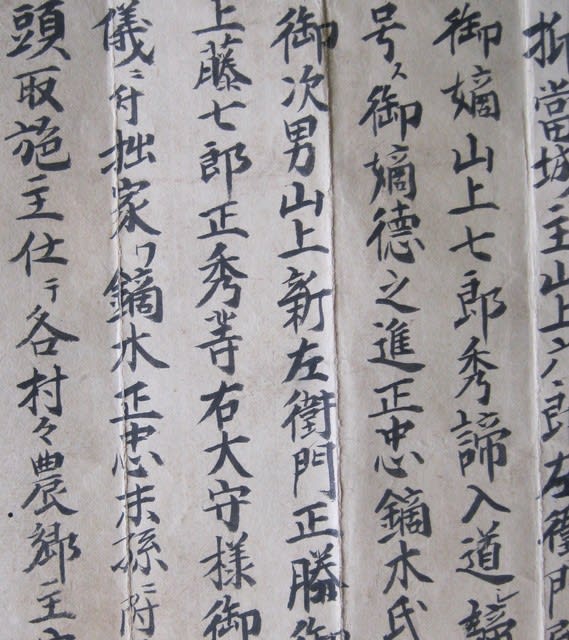 抑當城主山上六郎左衛門
御嫡山上七郎秀諦入道シ
号ス御嫡德之進正忠鏑木氏
御次男山上新左衛門正勝御
上藤七郎正秀等右大守様御
儀ニ付拙家ワ鏑木正忠末孫ニ附
頭取施主仕テ各村々農郷主